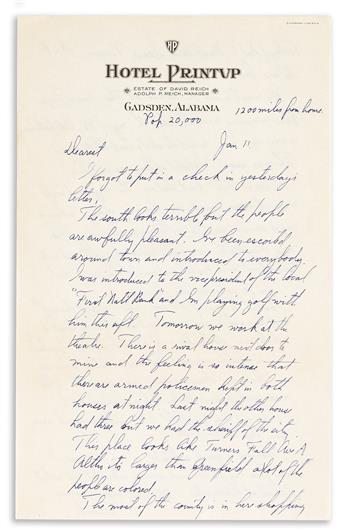 HP
HOTEL PRINTUP
ESTATE OF DAVID REICH
ADOLPH P. REICH, MANAGER
GADSDEN, ALABAMA
1200 miles from home
Pop. 20,000
Jan 11
Dearest
I forgot to put in a check in yesterday's
letter.
The south looks terrible, but the people
are awfully pleasant. I've been escorted
around town and introduced to everybody.
I was introduced to the vicepresident of the local
"First Natl Bank" and I'm playing golf with
him this aft. Tomorrow we work at the
theatre. There is a rival house next door to
mine and the feeling is so intense that
there are armed policemen kept in both
houses at night. Last night the other house
had three but we had the sheriff of the city.
This place looks like Turners Fall
its larger than Greenfield a lot of the
people are colored.
The most of the county is in here shopping